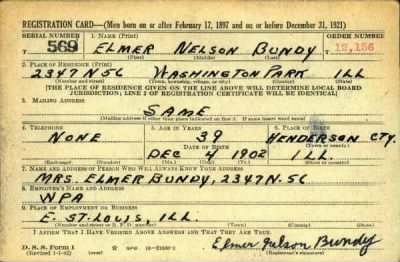 REGISTRATION CARD—(Men born on or after February 17, 1897 and on or before December 31, 1921)
SERIAL NUMBER 1. NAME (Print) ORDER NUMBER
T 569 ELMER NELSON BUNDY T 12,156
(First) (Middle) (Last)
2. PLACE OF RESIDENCE (Print)
2347 N 56 WASHINGTON PARK ILL
(Number and street) (Town, township, village, or city) (County) (State)
[THE PLACE OF RESIDENCE GIVEN ON THE LINE ABOVE WILL DETERMINE LOCAL BOARD
JURISDICTION; LINE 2 OF REGISTRATION CERTIFICATE WILL BE IDENTICAL]
3. MAILING ADDRESS
SAME
[Mailing address if other than place indicated on line 2. If same insert word same]
4. TELEPHONE 5. AGE IN YEARS 6. PLACE OF BIRTH
NONE 39 HENDERSON CTY.
DATE OF BIRTH (Town or county)
DEC 1902 ILL.
(Exchange) (Number) (Mo.) (Day) (Yr.) (State or country)
7. NAME AND ADDRESS OF PERSON WHO WILL ALWAYS KNOW YOUR ADDRESS
MRS. ELMER BUNDY, 2347 N. 56
8. EMPLOYER'S NAME AND ADDRESS
NPA
9. PLACE OF EMPLOYMENT OR BUSINESS
E. ST. LOUIS, ILL.
(Number and street or R. F. D. number) (Town) (County) (State)
I AFFIRM THAT I HAVE VERIFIED ABOVE ANSWERS AND THAT THEY ARE TRUE.
D. S. S. Form 1
(Revised 1-1-42) (over)
Elmer Nelson Bundy
(Registrant's signature)